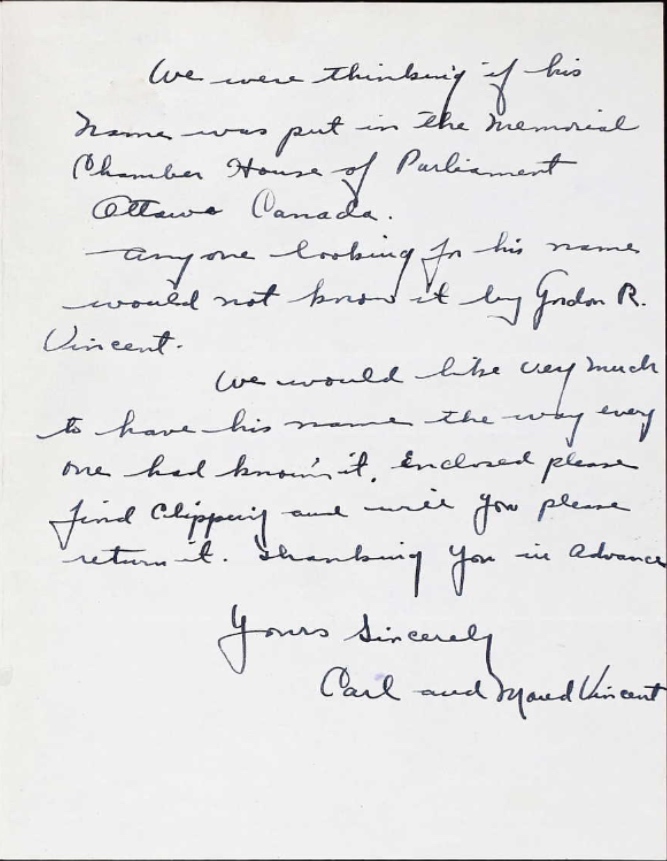 We were thinking if his
Name was put in the Memorial
Chamber House of Parliament
Ottawa Canada.
anyone looking for his name
would not know it by Gordon R.
Vincent.
We would like very much
to have his name the way every
one had known it. Enclosed please
find Clipping and will you please
return it. Thanking you in Advance
Yours Sincerely
Carl and Maud Vincent